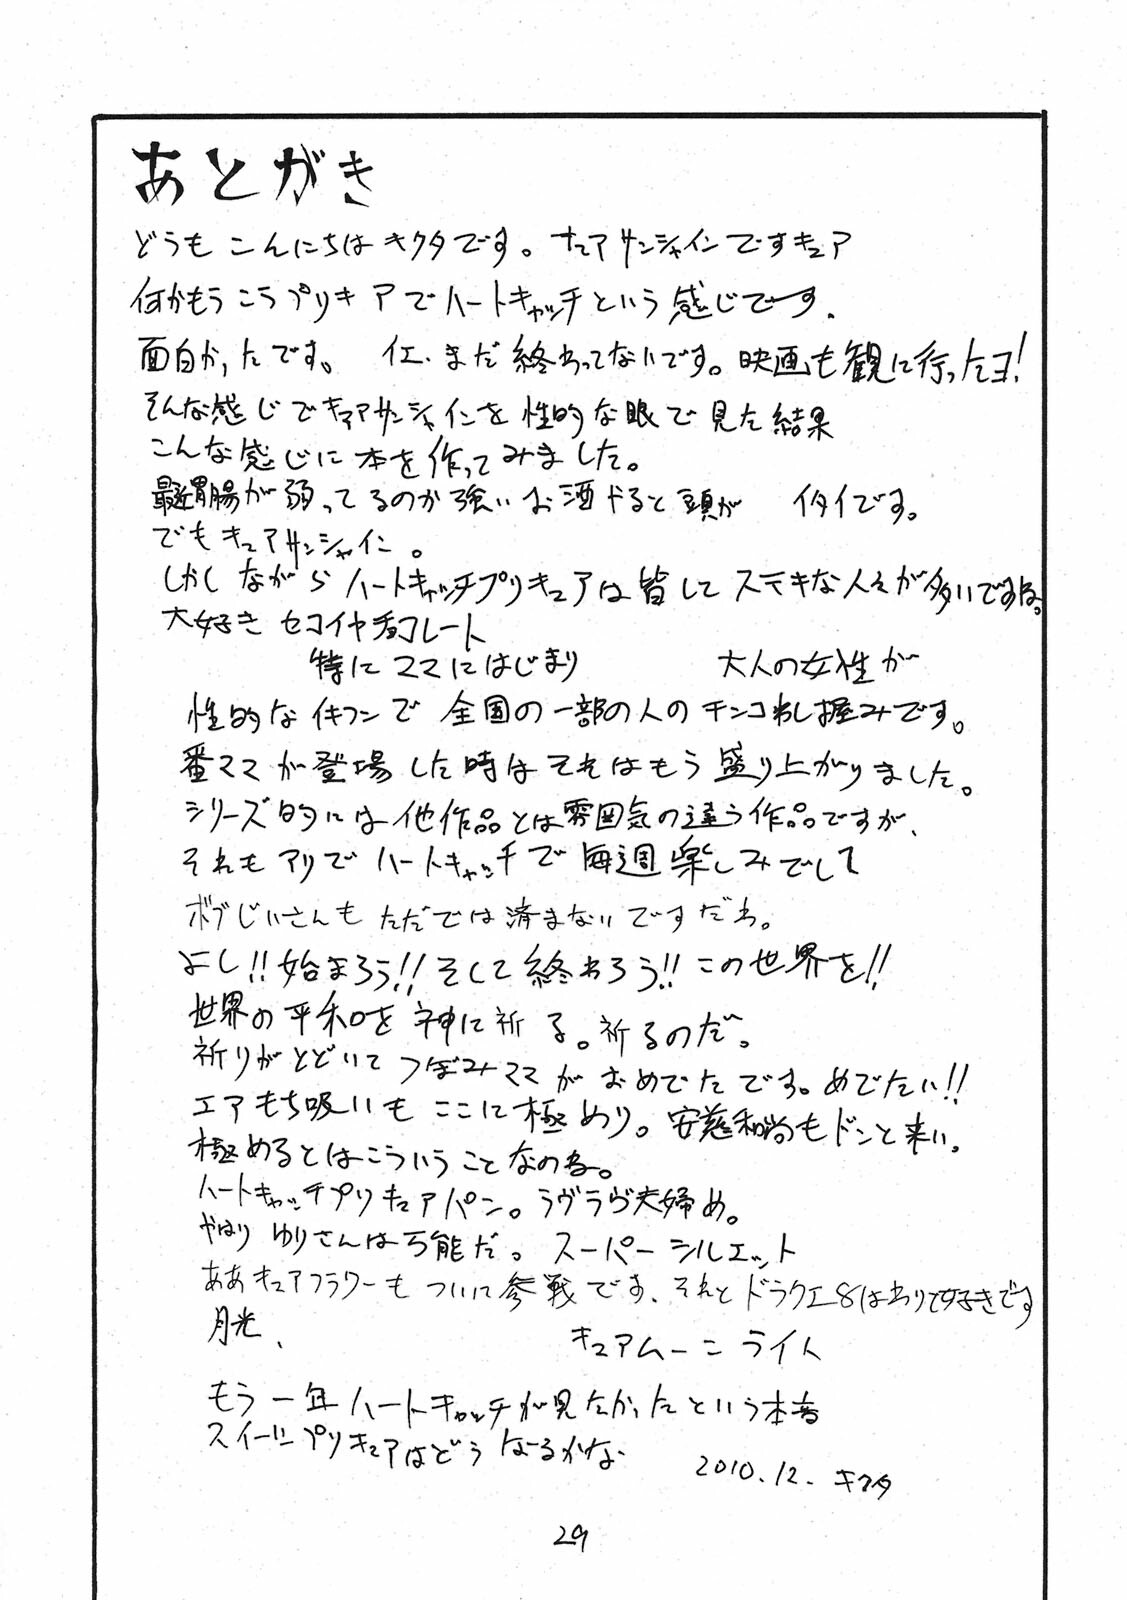 あとがき
どうも こんにちは キクタです。 キュアサンシャインですキュア
何かもう こう プリキュアで ハートキャッチ という 感じです.
面白かったです。 イエ、まだ 終わってないです。映画も観に行ったヨ!
そんな感じで キュアサンシャインを 性的な眼で 見た結果
こんな感じに 本を 作ってみました。
最近胃腸が弱ってるのか 強い お酒やると 頭が イタイです。
でも キュアサンシャイン。
しかしながら ハートキャッチプリキュアは 皆して ステキな人が多いですね。
大好き セコイヤチョコレート
特に ママにはじまり 大人の女性が
性的なイキフンで 全国の一部の人の チンコわし握みです。
番ママが登場した時は それはもう 盛り上がりました。
シリーズ的には 他作品とは 雰囲気の違う作品ですが、
それも アリで ハートキャッチで 毎週楽しみでして
ボブじいさんも ただでは 済まないですだわ。
よし!!始まろう!!そして 終わろう!!この世界を!!
世界の平和を 神に祈る。祈るのだ。
祈りがとどいて つぼみママが おめでたです。めでたい!!
エアもち吸いも ここに極めり。安慈和尚もドンと来い。
極めるとは こういう ことなのね。
ハートキャッチプリキュアパン。ラヴラヴ夫婦め。
やはり ゆりさんは 万能だ。 スーパーシルエット
ああ キュアフラワーも ついに 参戦です、それと ドラクエ8はわりと好きです
月光、 キュアムーンライト
もう一年 ハートキャッチが 見たかった という 本音
スイートプリキュアは どう なるかな
2010.12. キクタ
29